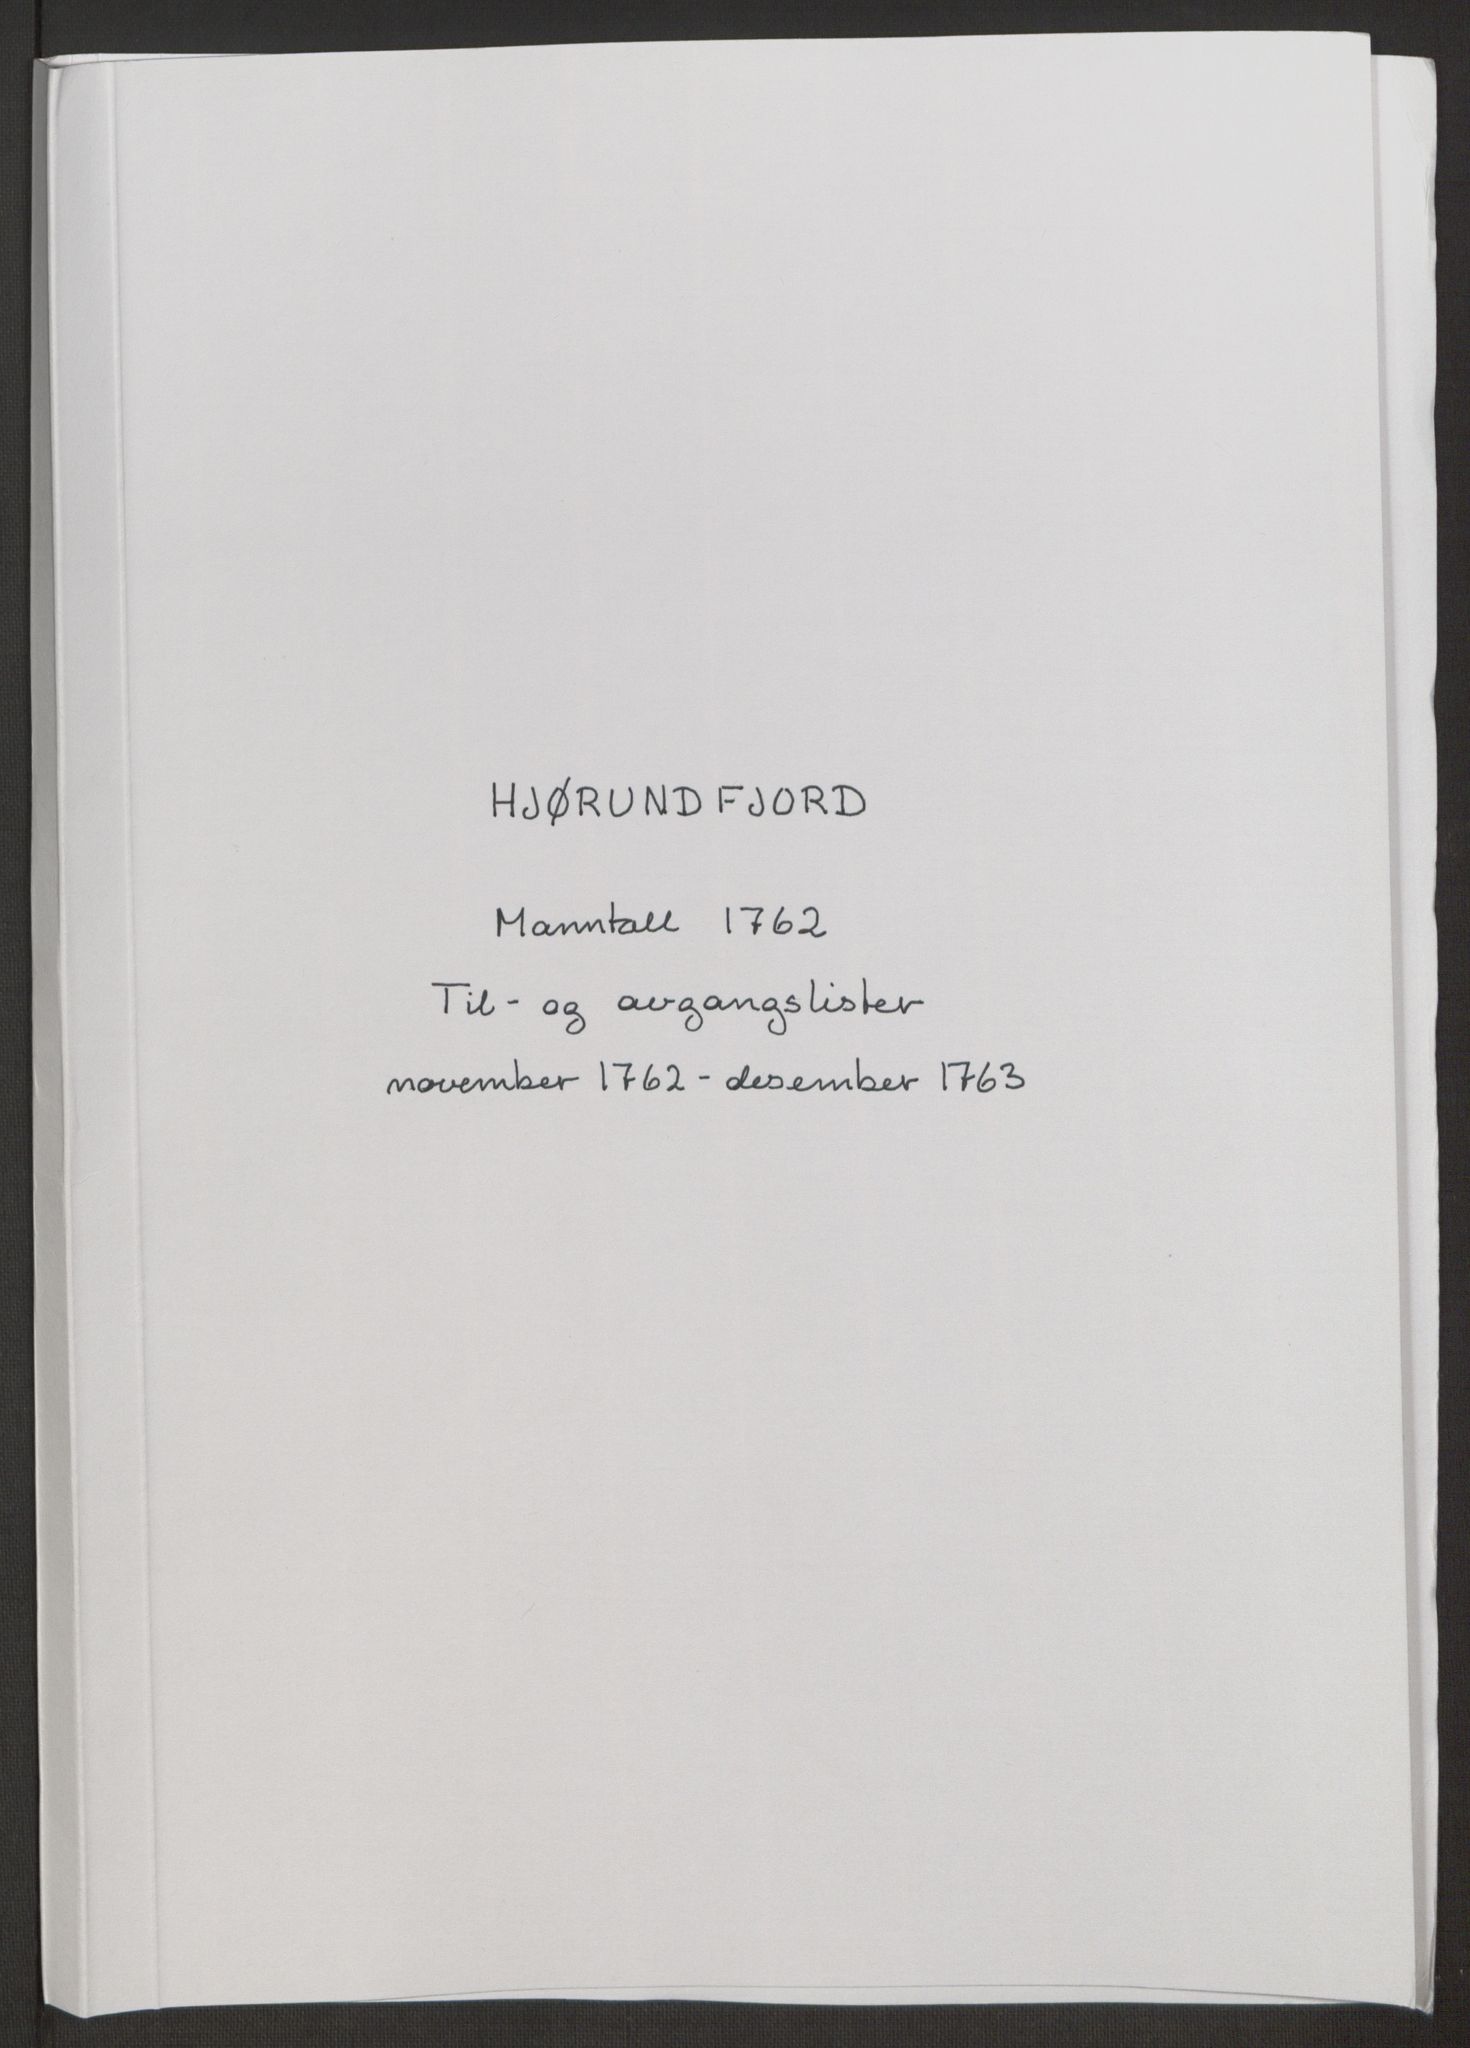 HJØRUNDFJORD
Manntall 1762
Til- og avgangslister
november 1762 - desember 1763